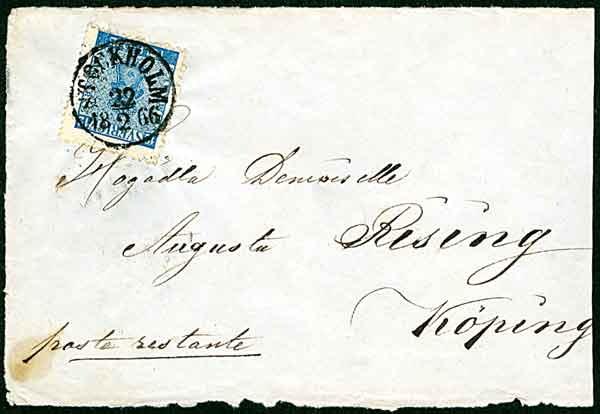 STOCKHOLM
22
18 2 66
SVERIGE
Högädla Demoiselle
Augusta Rising
Köping
poste restante